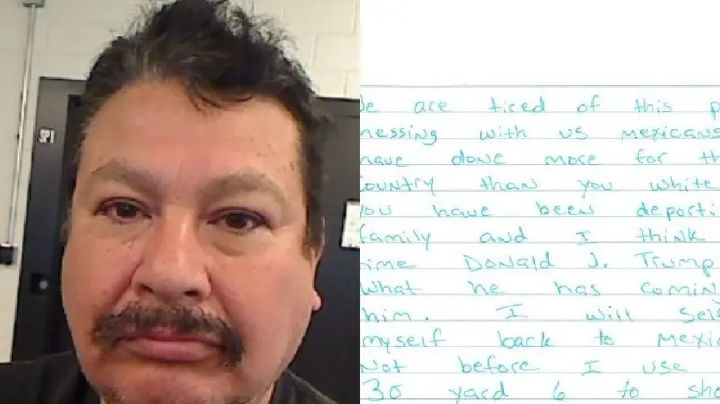 SPI
e are tired of this p
messing with us mexicans
have done more for th
country than you white
you have been deporti
family and I think
ime Donald J. Trump
what he has comin
him. I will Sel
myself back to mexi
Not before I use
30 yard 6 to sho